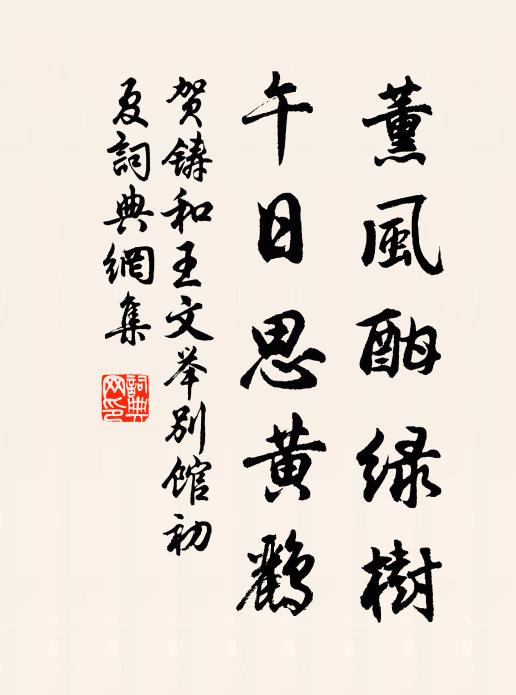 薰風酣绿樹
午日思黄鸝
贺鋳和王文举别馆初
夏詞典網集
詞典网印